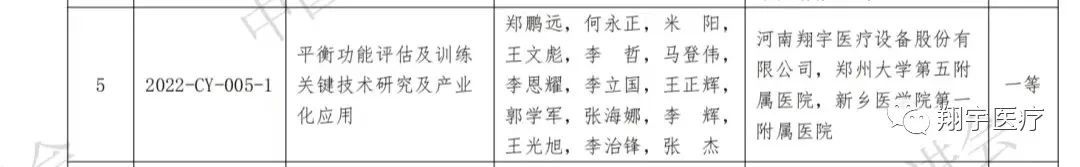 5
2022-CY-005-1
平衡功能评估及训练
关键技术研究及产业
化应用
郑鹏远，何永正，米　阳，
王文彪，李　哲，马登伟，
李恩耀，李立国，王正辉，
郭学军，张海娜，李　辉，
王光旭，李治锋，张　杰
河南翔宇医疗设备股份有
限公司，郑州大学第五附
属医院，新乡医学院第一
附属医院
一等
翔宇医疗